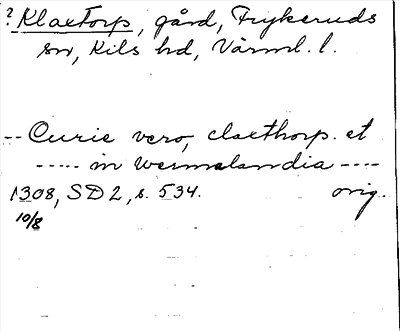 ? Klaxtorp, gård, Frykeruds
sn, Kils hd, Värml. l.
-- Curie vero, claxthorp. et
----- in wermalandia ----
1308, SD 2, s. 534. orig.
10/8